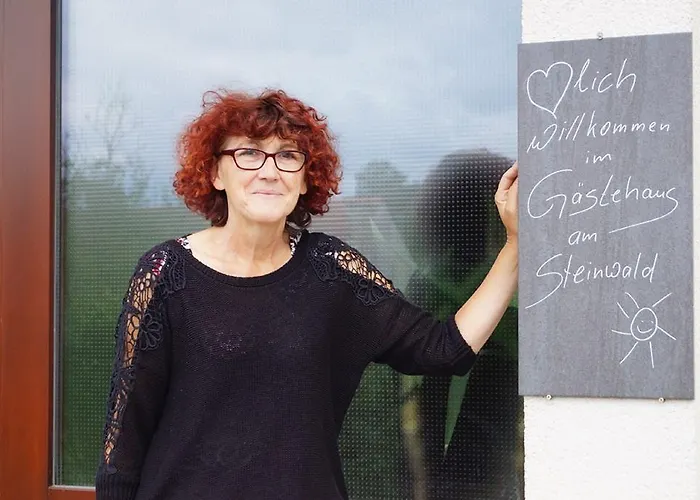 ♡lich
Willkommen
im
Gästehaus
am
Steinwald